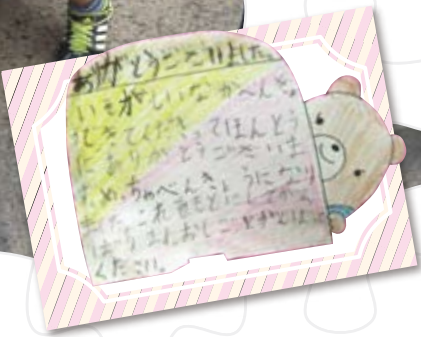 ありがとうございました。
いそがしいなかべんき
してくださってほんとう
にありがとうございま
す。めっちゃべんきょうになり
ました。これをもとにして
おしごとがんば
ください。